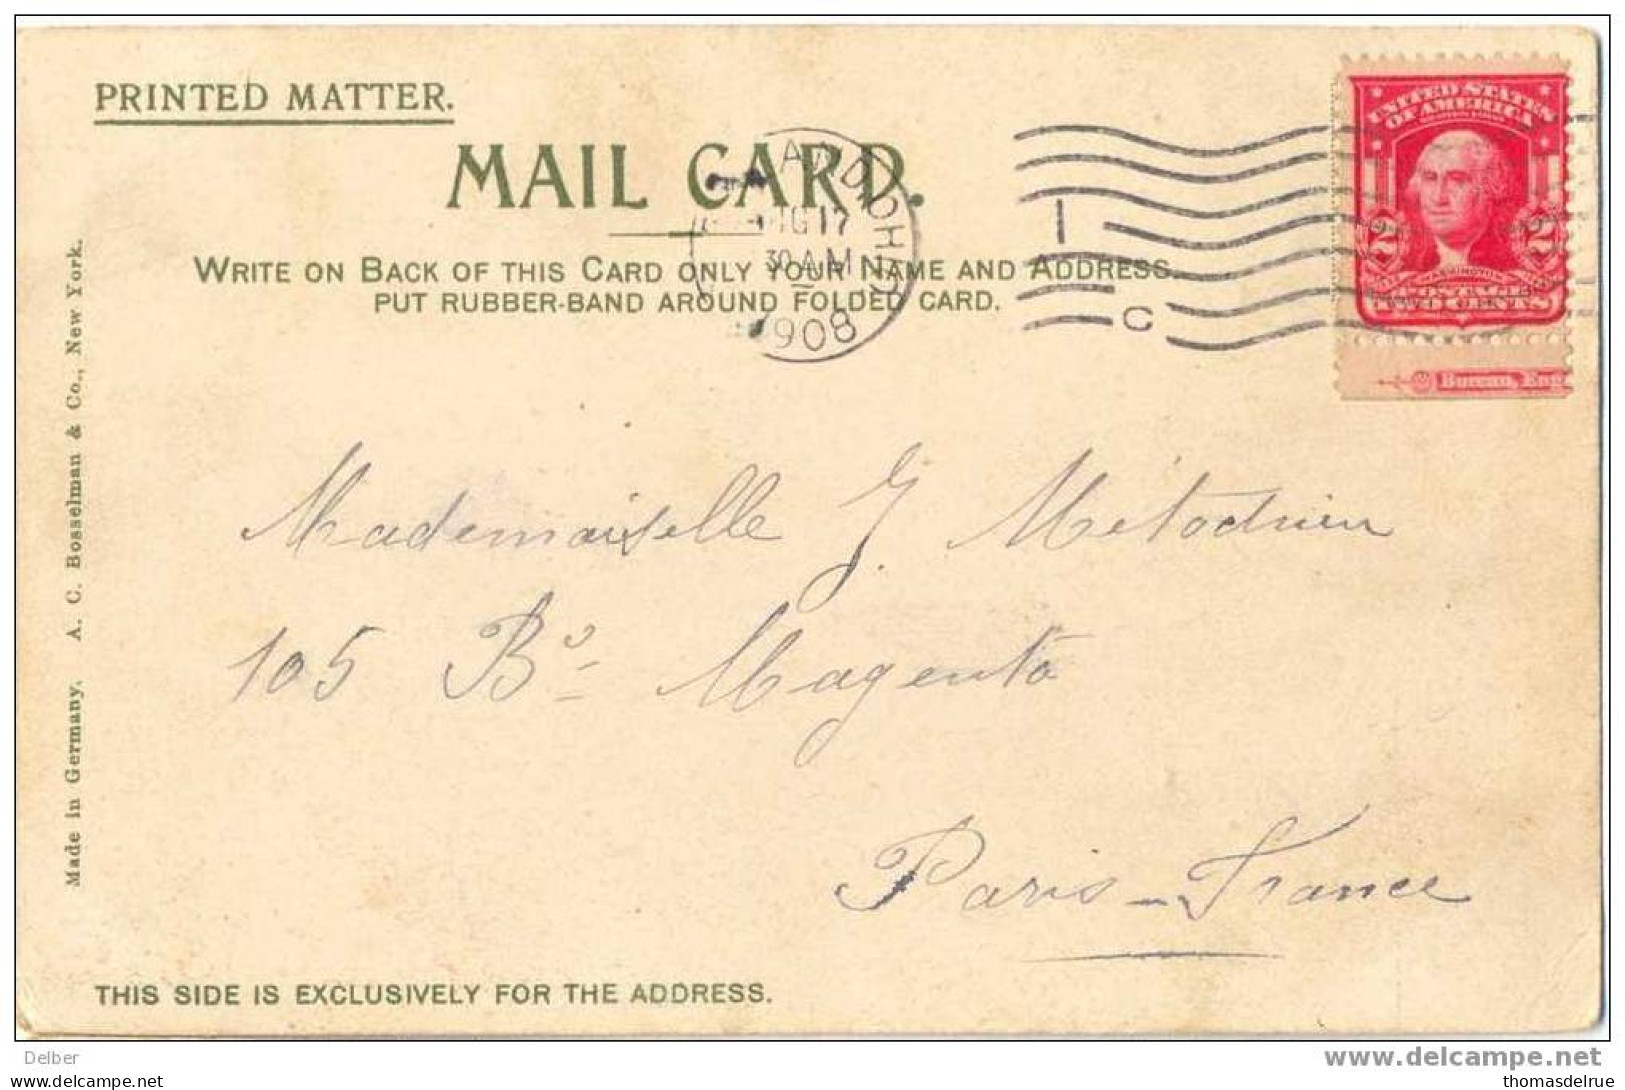 PRINTED MATTER.
MAIL CARD.
WRITE ON BACK OF THIS CARD ONLY YOUR NAME AND ADDRESS.
PUT RUBBER-BAND AROUND FOLDED CARD.
17
30 AM
1908
C
UNITED STATES
OF AMERICA
2 2
WASHINGTON
POSTAGE
TWO CENTS
Bureau, Eng
Mademoiselle J.
105 Bd Magenta
Paris - France
THIS SIDE IS EXCLUSIVELY FOR THE ADDRESS.
Made in Germany. A. C. Bosselman & Co., New York.
Delber
www.delcampe.net
thomasdelrue